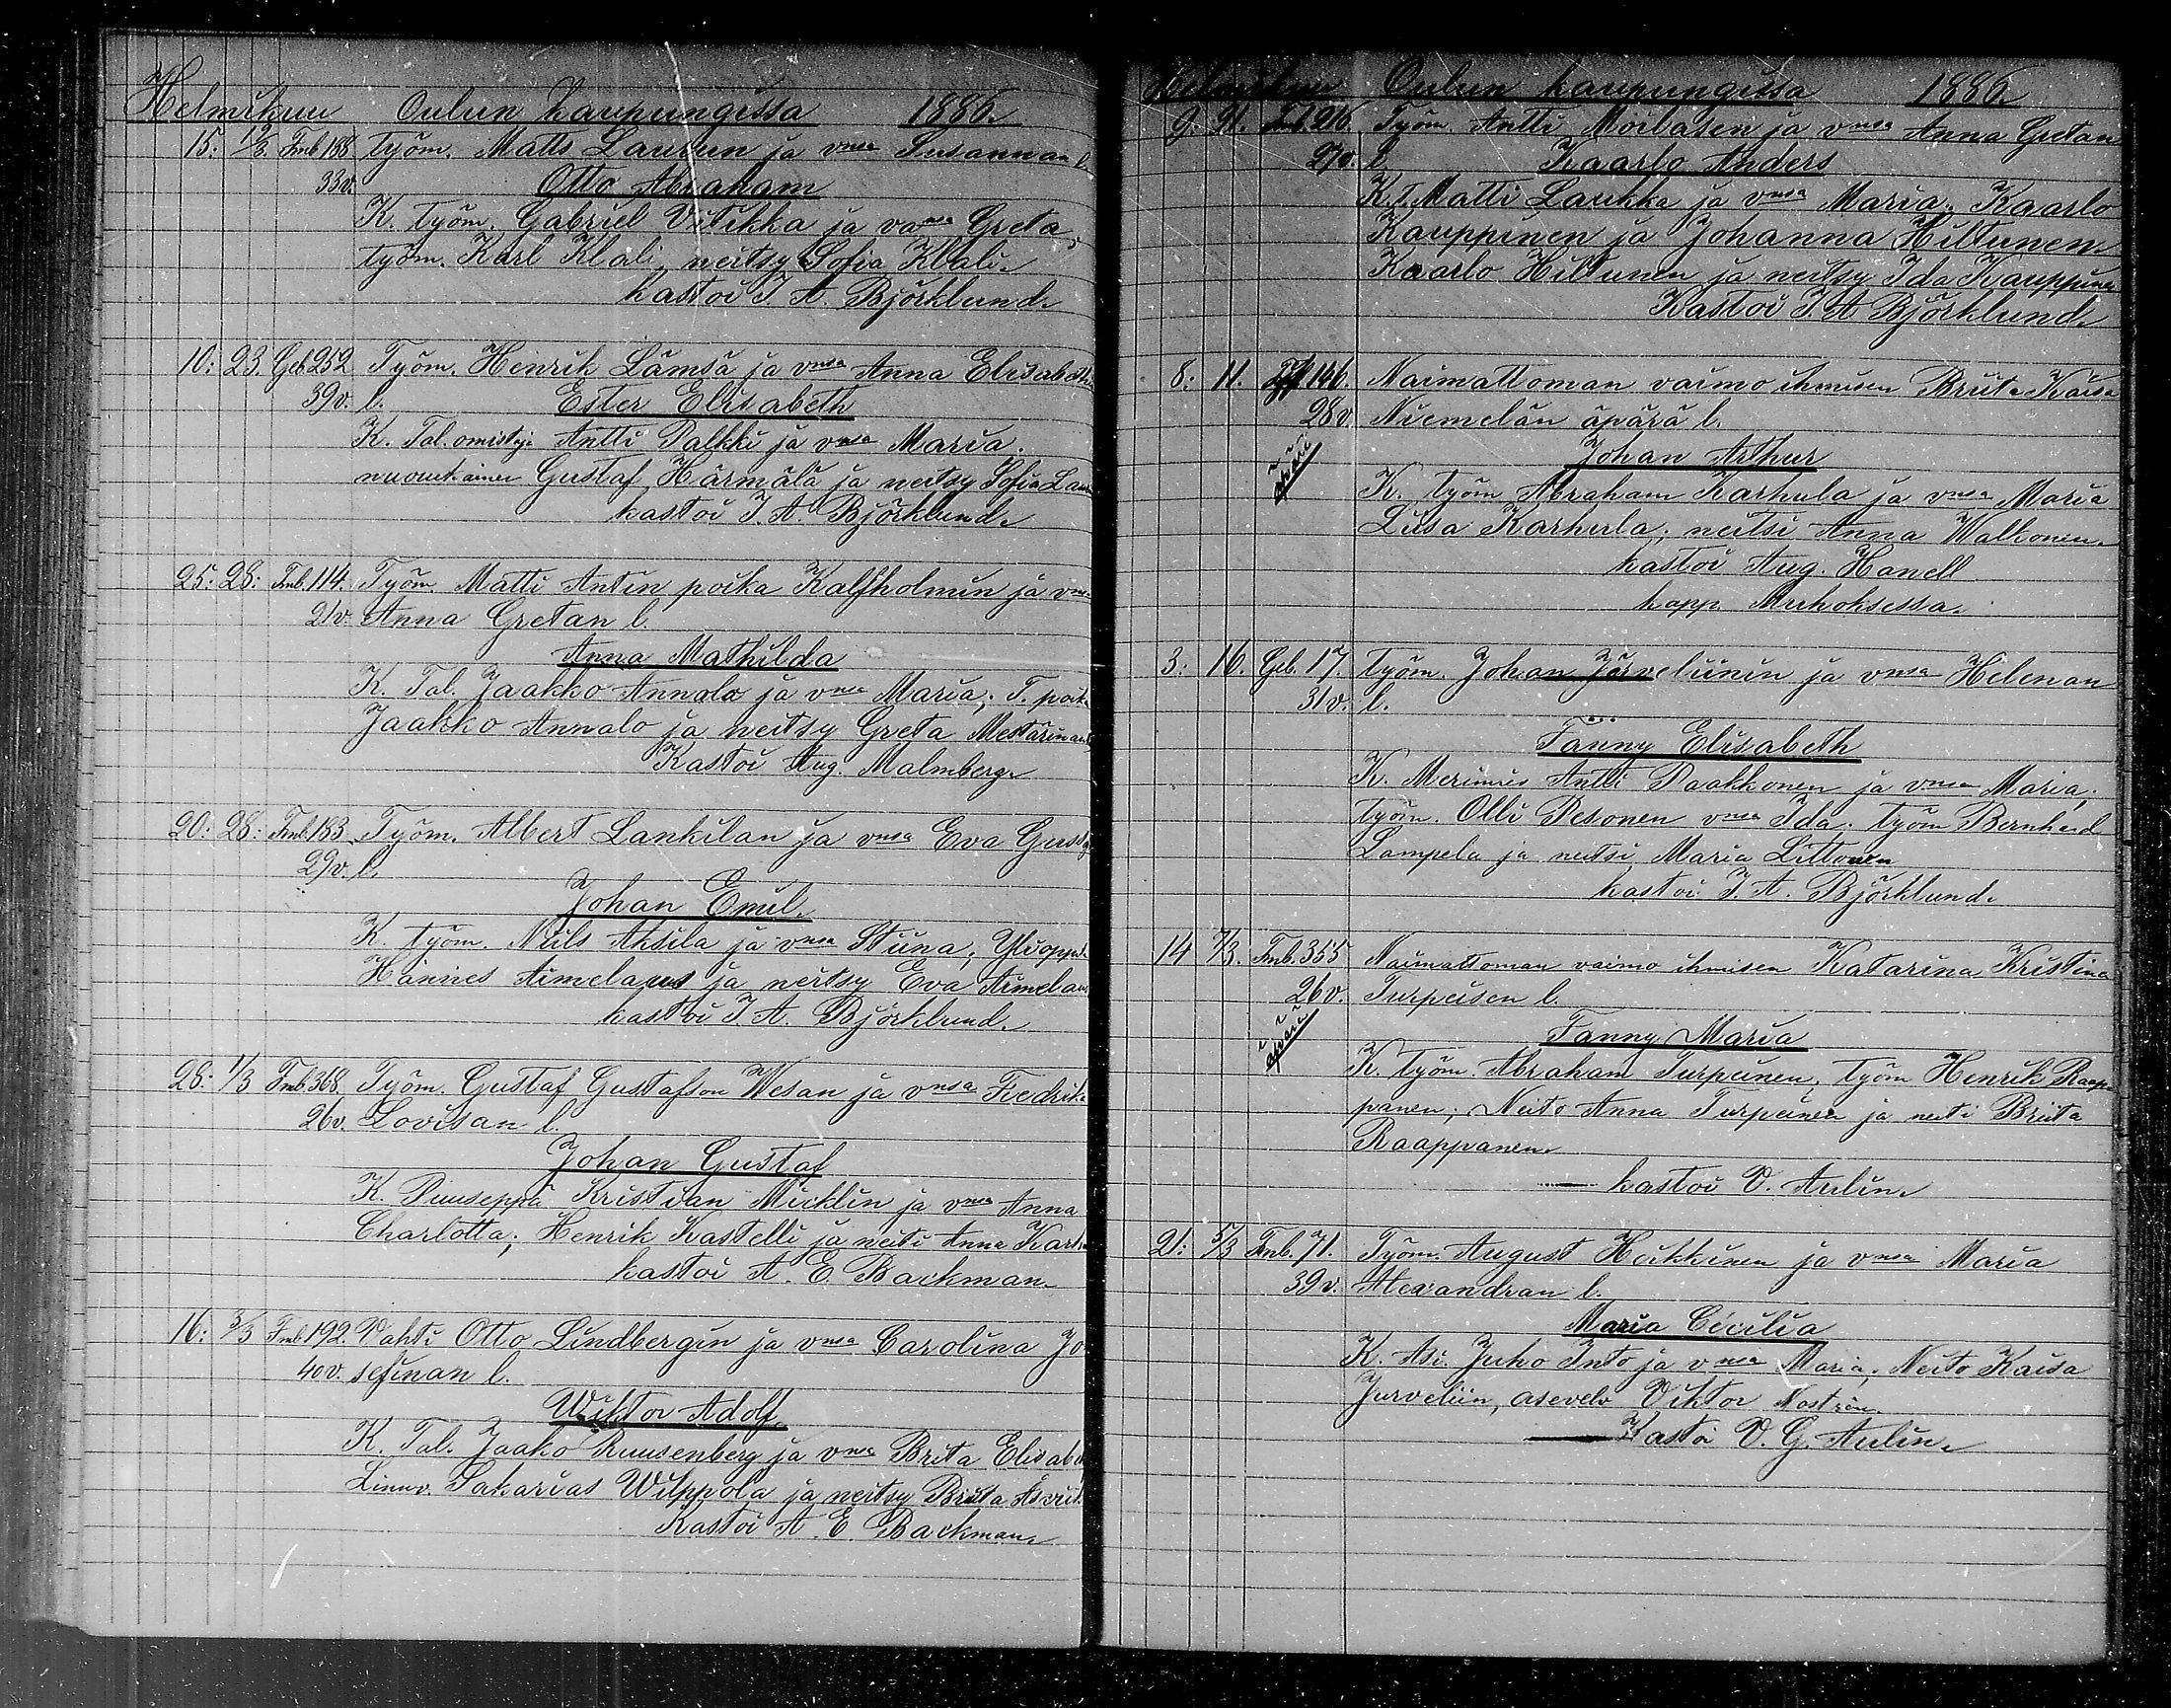 Helmikuu Oulun kaupungissa 1886.
15: 19/3 Fmb 188 Työm. Matts Laurun ja vmsa Susannan l.
33v. Otto Abraham
K. Työm. Gabriel Vitikka ja vmsa Greta;
työm. Karl Klali, neitsy Sofia Klali.
kastoi J. A. Björklund.
10: 23. Geb 252 Työm. Henrik Lämsä ja vmsa Anna Elisabethin
39v. l. Ester Elisabeth
K. Tal. omistaja Antti Palkki ja vmsa Maria.
nuorukainen Gustaf Härmälä ja neitsy Sofia
kastoi J. A. Björklund.
25: 28: Fmb. 114. Työm. Matti Antin poika Kalfholmin ja vmsa
21v. Anna Gretan l.
Anna Mathilda
K. Tal. Jaakko Annala ja vmsa Maria; T. poika
Jaakko Annalo ja neitsy Greta
Kastoi Aug. Malmberg.
20: 28: Fmb. 183 Työm. Albert Lankilan ja vmsa Eva
29v. l.
Johan Emil.
K. työm. Niils Ahsila ja vmsa Stiina; Yliopp.
Hannes Aimelaeus ja neitsy Eva Aimelaeus
kastoi J. A. Björklund.
28: 1/3 Fmb. 368 Työm. Gustaf Gustafson Wesan ja vmsa Fredrika
26v. Lovisan l.
Johan Gustaf
K. Puuseppä Kristian Micklin ja vmsa Anna
Charlotta; Henrik Kastelli ja neiti Anna
kastoi A. E. Backman.
16: 3/3 Fmb. 192. Vahti Otto Lindbergin ja vmsa Carolina Jo
40v. sefinan l.
Wiktor Adolf.
K. Tal. Jaako Ruusenberg ja vmsa Brita Elisabet
Linnv. Sakarias Wilppola ja neitsy Brita
Kastoi A. E. Backman.
Helmikuu Oulun kaupungissa 1886.
9: 21. Fmb. 216. Työm. Antti Moilasen ja vmsa Anna Gretan
27v. l. Kaarlo Anders
K. T. Matti Laukka ja vmsa Maria. Kaarlo
Kauppinen ja Johanna Hiltunen
Kaarlo Hiltunen ja neitsy Ida Kauppinen
Kastoi J. A Björklund.
8: 11. 146. Naimattoman vaimo ihmisen Briita Kaisa
28v. Niemelän äpärä l.
äpärä Johan Arthur
K. työm Abraham Karhula ja vmsa Maria
Liisa Karhula; neitsi Anna Walkonen.
kastoi Aug. Hanell
kapp. Muhoksessa.
3: 16. Geb. 17. työm. Johan Järveliinin ja vmsa Helenan
31v. l.
Fanny Elisabeth
K. Merimies Antti Paakkonen ja vmsa Maria;
työm. Olli Pesonen vmsa Ida. työm Bernhard
Lampela ja neitsi Maria Littonen
kastoi J. A. Björklund.
14 7/3. Fmb. 355 Naimattoman vaimo ihmisen Katarina Kristina
26v. Turpeisen l.
äpärä Fanny Maria
K. työm. Abraham Turpeinen, työm Henrik Raap-
panen; Neito Anna Turpeinen ja neiti Briita
Raappanen.
kastoi V. Aulin.
21: 5/3 Fmb. 71. Työm. August Heikkinen ja vmsa Maria
39v. Alexandran l.
Maria Cecilia
K. Asi. Juho Into ja vmsa Maria; Neito Kaisa
Jurveliin, asevelv Viktor
Kastoi V. G. Aulin.